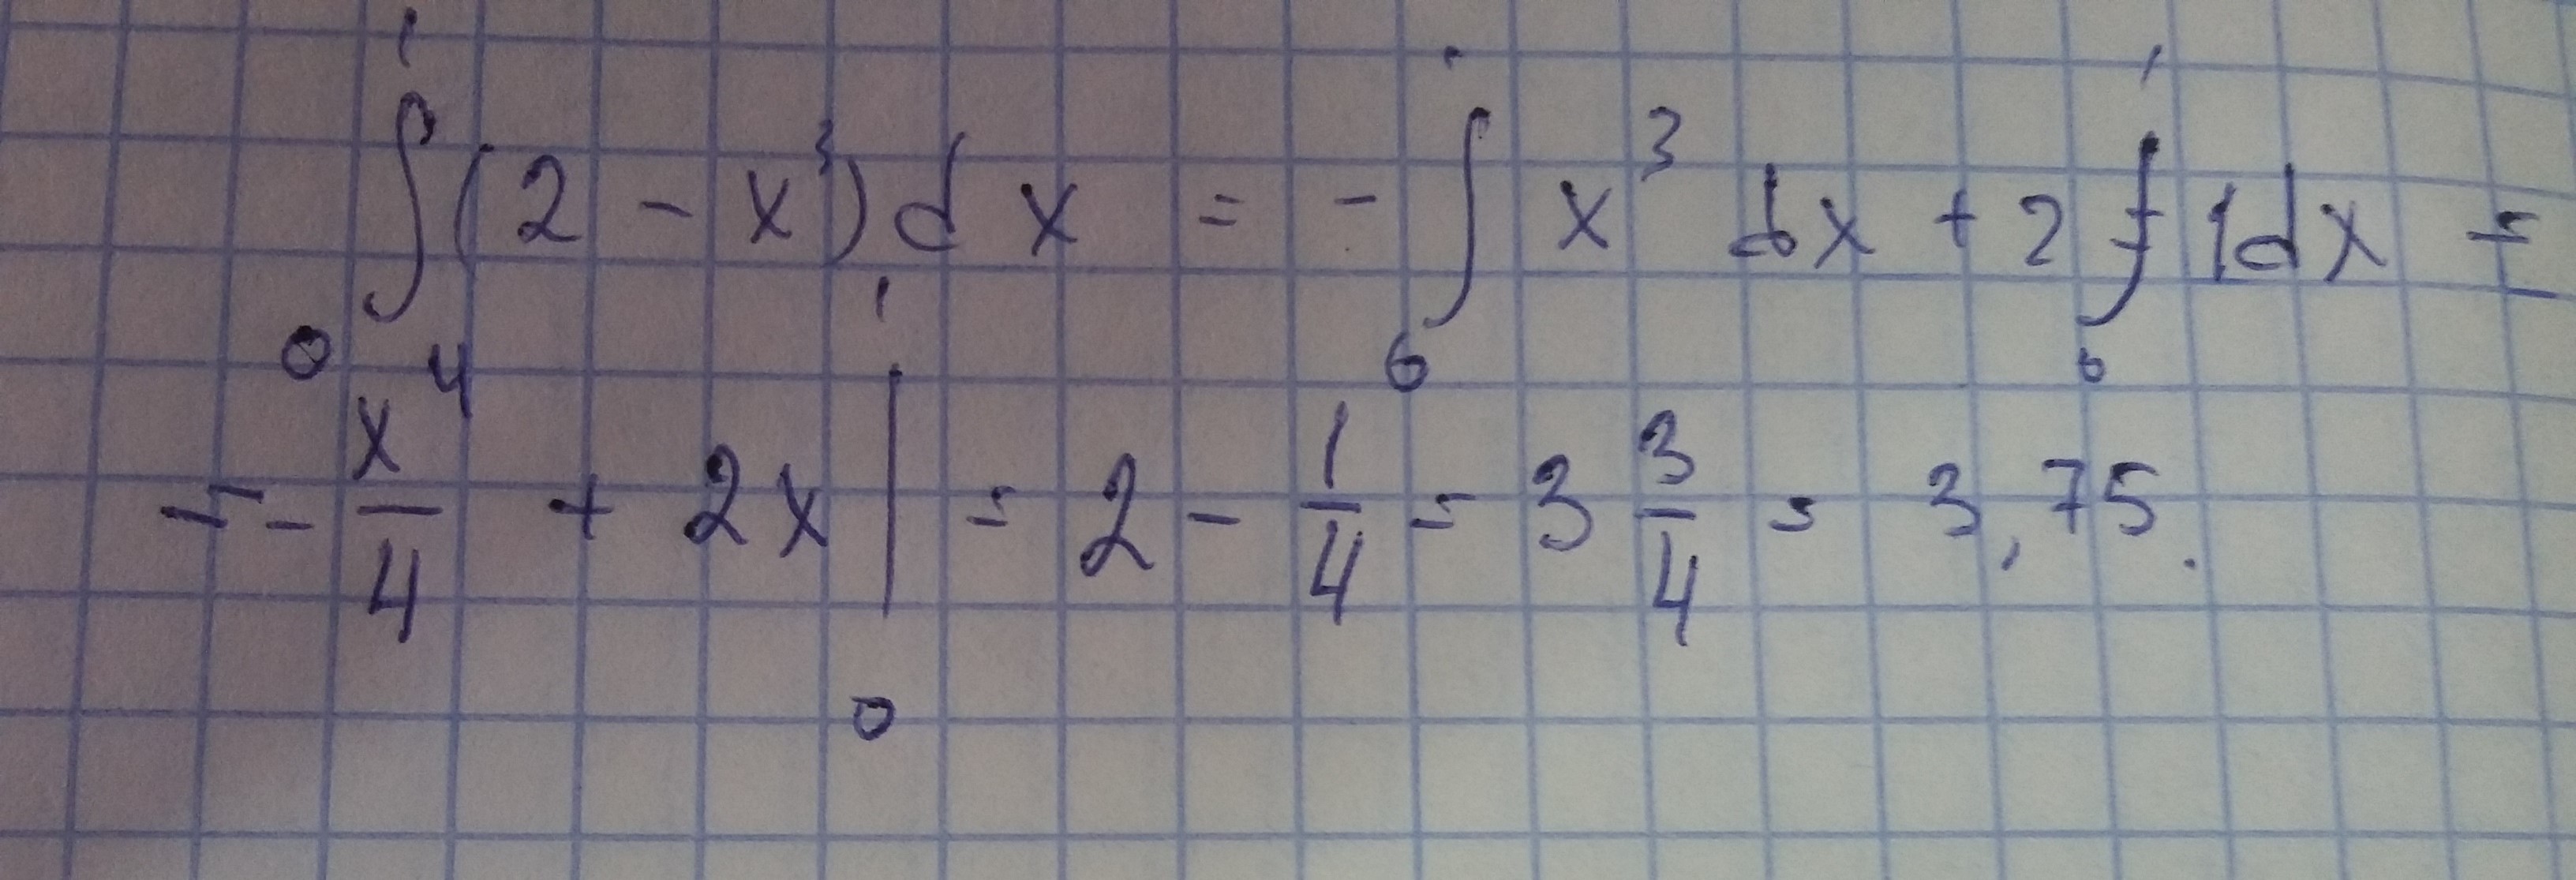 ∫₀¹ (2 - x³) dx = - ∫₀¹ x³ dx + 2 ∫₀¹ 1dx =
= - x⁴/4 + 2x |₀¹ = 2 - 1/4 = 3 3/4 = 3,75.